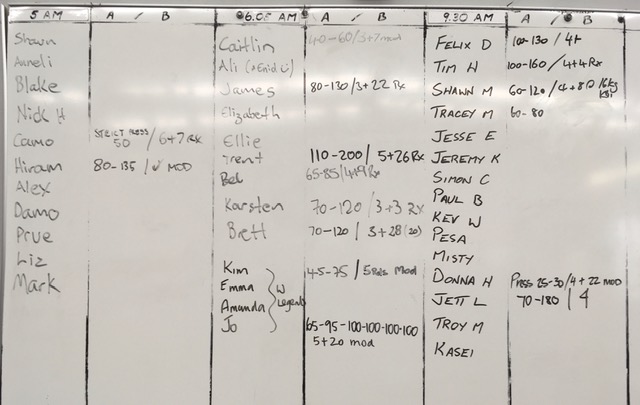 5 AM A / B
Shawn
Aureli
Blake
Nick H
Camo STRICT PRESS 50 / 6+7 RX
Hiram 80-135 / ✓ MOD
Alex
Damo
Prue
Liz
Mark
6.05 AM A / B
Caitlin 40-60/3+7 mod
Ali
James 80-130/3+22 Rx
Elizabeth
Ellie
Trent 110-200 / 5+26 Rx
Bel 65-85/4+9 Rx
Karsten 70-120 / 3+3 RX
Brett 70-120 / 3+28 (20)
Kim 45-75 / 5 Rds Mod
Emma W
Amanda Legends
Jo 65-95-100-100-100-100
5+20 mod
9.30 AM A / B
FELIX D 100-130 / 4+
TIM H 100-160 / 4+4 Rx
SHAWN M 60-120 / 4+8 16kg KBs
TRACEY M 60-80
JESSE E
JEREMY K
SIMON C
PAUL B
KEV W
PESA
MISTY
DONNA H Press 25-30/4+22 MOD
JETT L 70-180 / 4
TROY M
KASEI